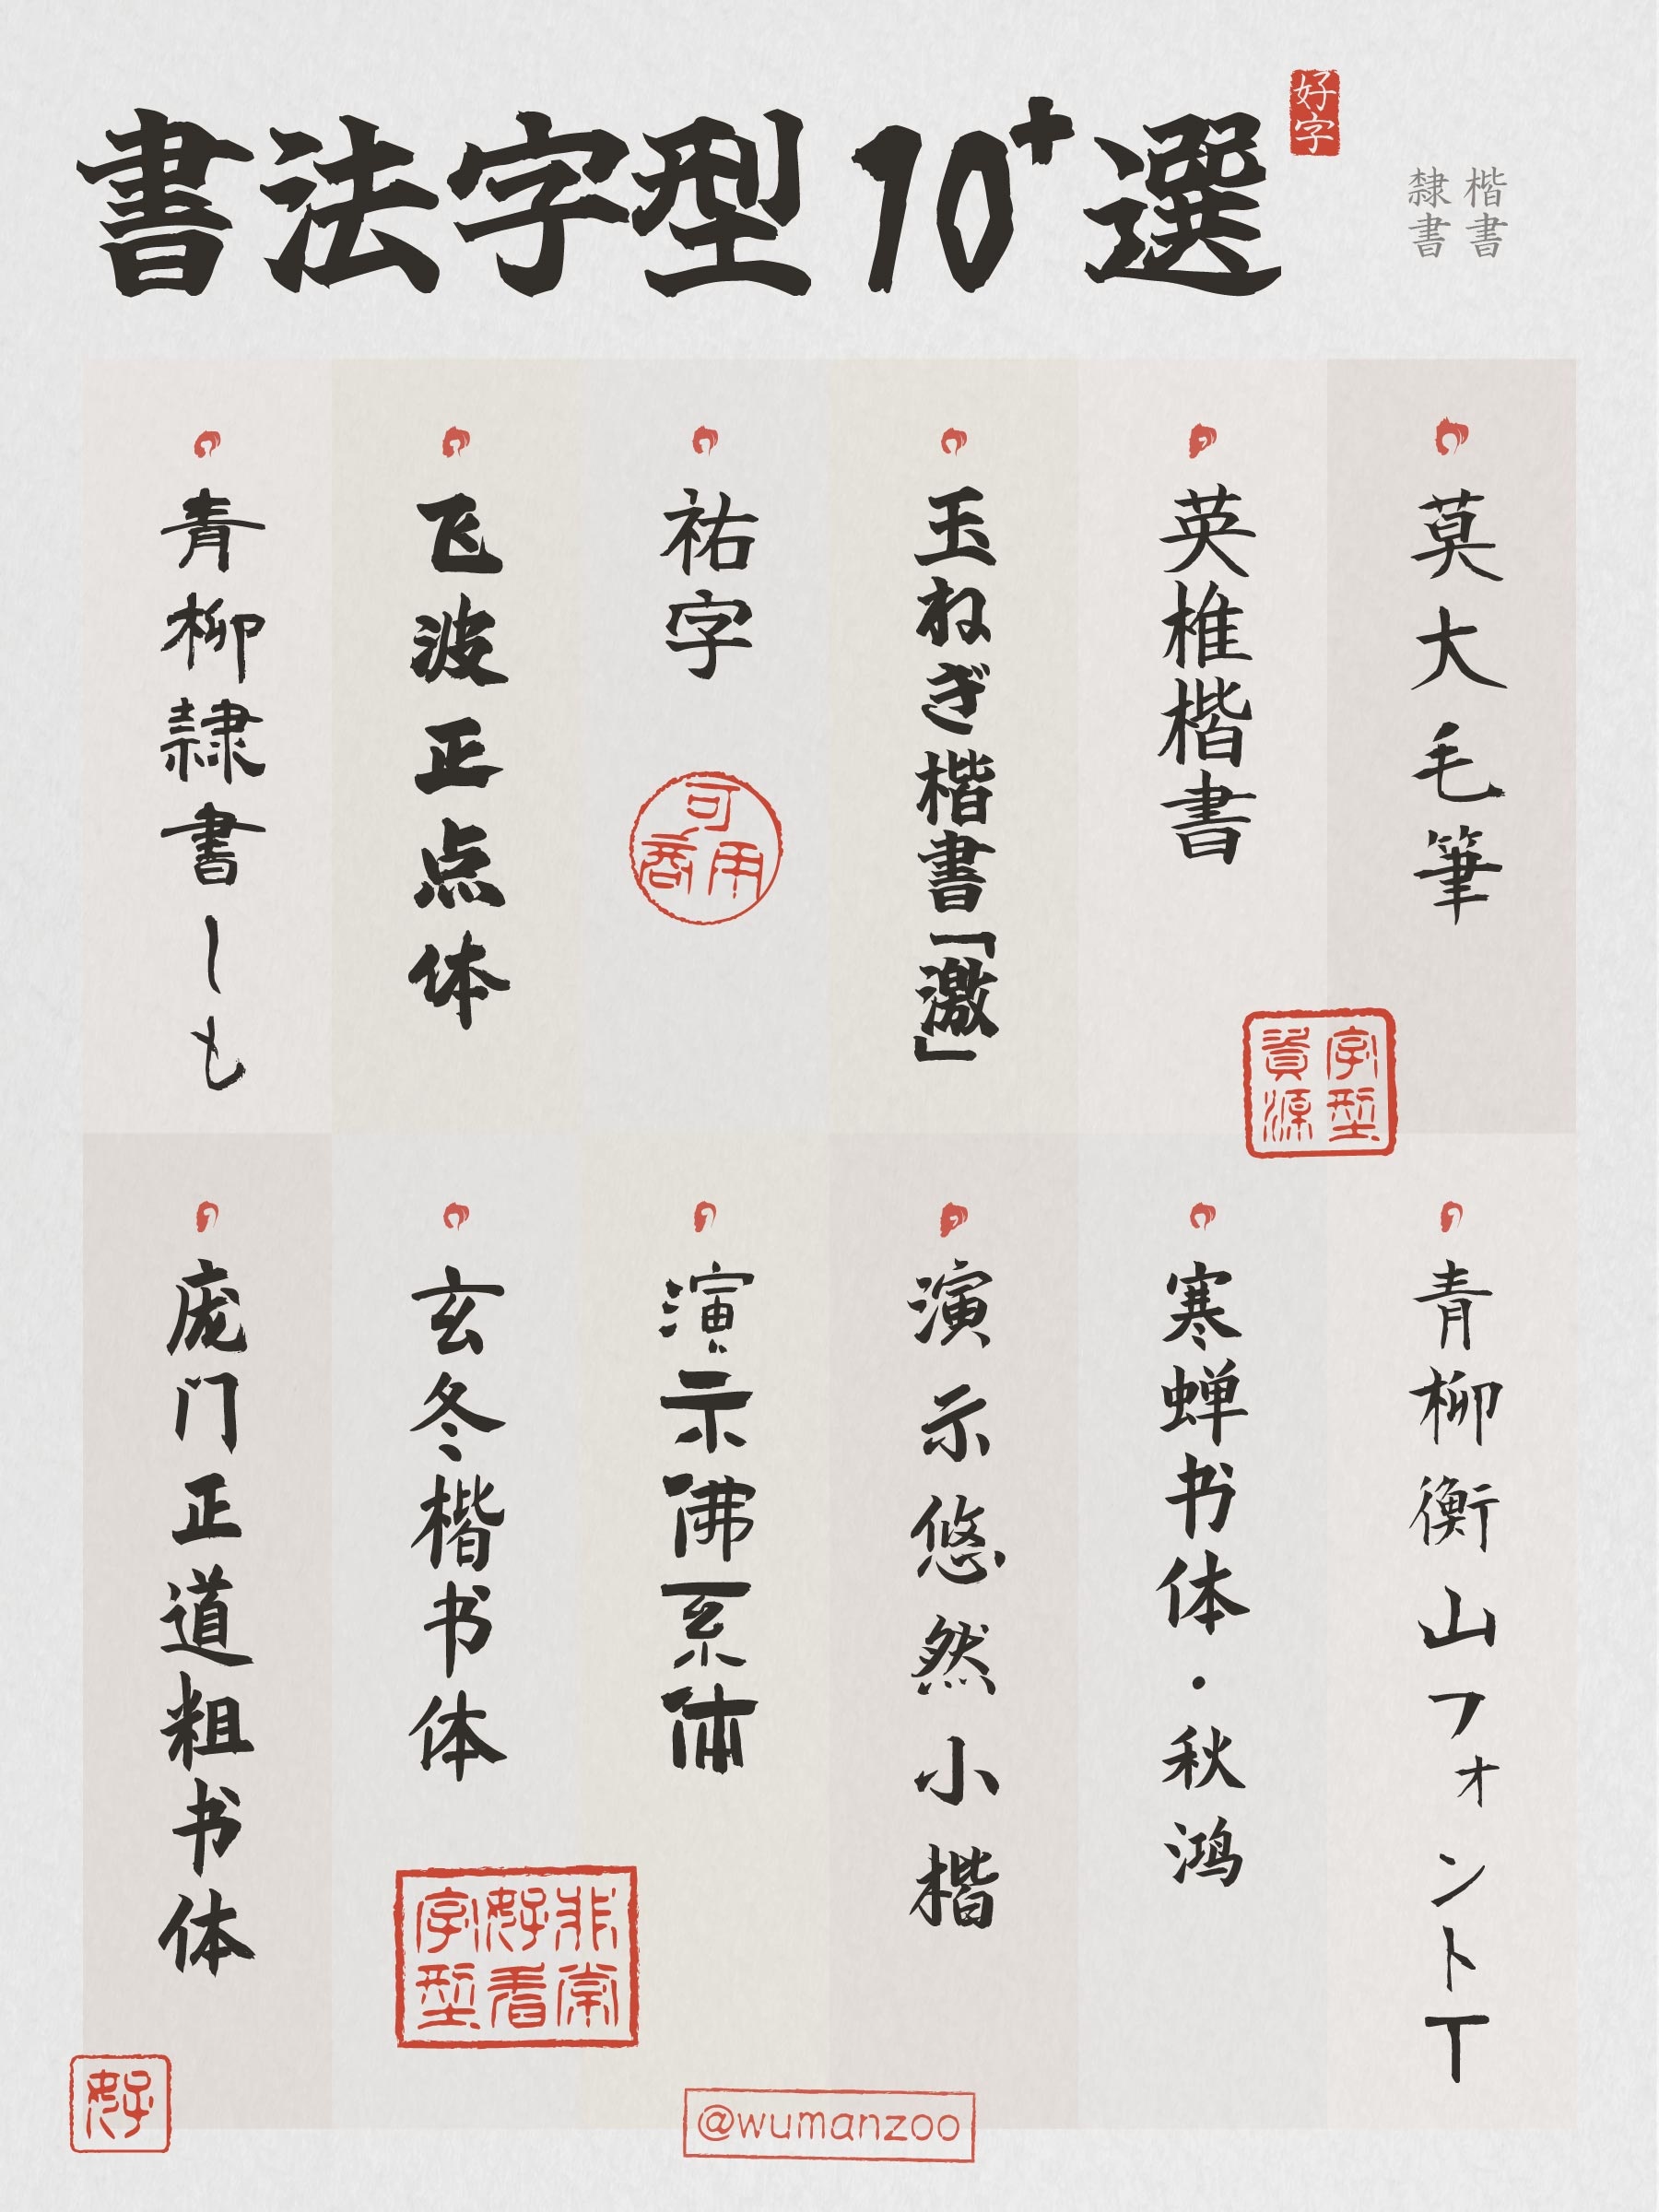 書法字型10+選
好字
楷書
隸書
莫大毛筆
英椎楷書
玉ねぎ楷書「激」
祐字
飞波正点体
青柳隷書しも
可商用
字型資源
青柳衡山フォントT
寒蝉书体·秋鸿
演示悠然小楷
演示佛系体
玄冬楷书体
庞门正道粗书体
非常好看字型
好
@wumanzoo